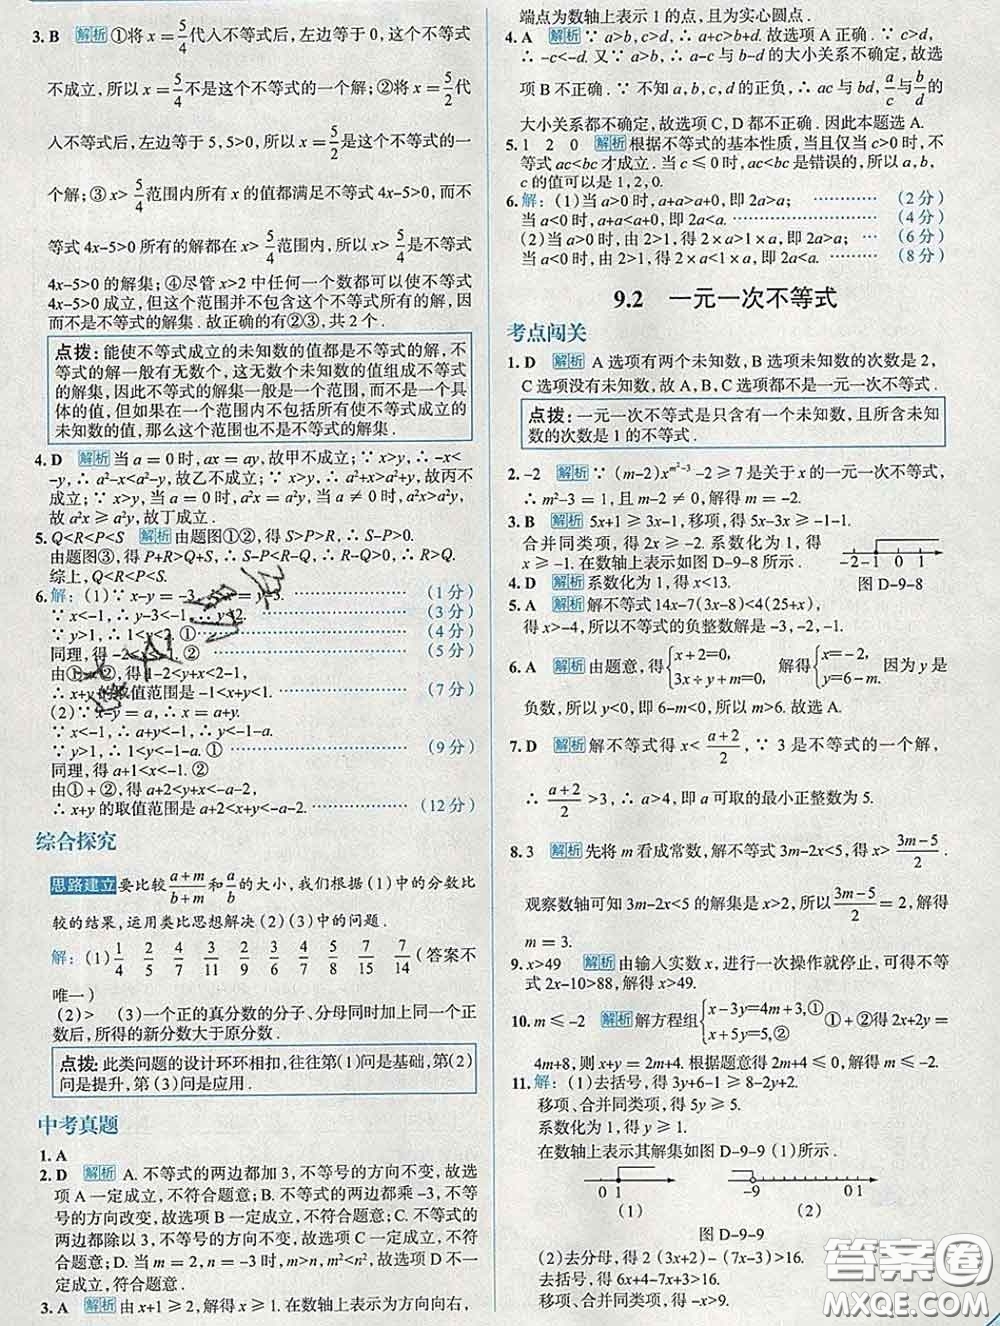 3. B 解析 ①将 x = 5/4 代入不等式后, 左边等于 0, 这个不等式
不成立, 所以 x = 5/4 不是这个不等式的一个解; ②将 x = 5/2 代
入不等式后, 左边等于 5, 5>0, 所以 x = 5/2 是这个不等式的一
个解; ③ x> 5/4 范围内所有 x 的值都满足不等式 4x-5>0, 而不
等式 4x-5>0 所有的解都在 x> 5/4 范围内, 所以 x> 5/4 是不等式
4x-5>0 的解集; ④尽管 x>2 中任何一个数都可以使不等式
4x-5>0 成立, 但这个范围并不包含这个不等式所有的解, 因
而不是不等式的解集. 故正确的有②③, 共 2 个.
点拨: 能使不等式成立的未知数的值都是不等式的解, 不
等式的解一般有无数个, 这无数个未知数的值组成不等式
的解集, 因此不等式的解集一般是一个范围, 而不是一个具
体的值, 但如果在一个范围内不包括所有使不等式成立的
未知数的值, 那么这个范围也不是不等式的解集.
4. D 解析 当 a = 0 时, ax = ay, 故甲不成立; ∵ x>y, ∴ -x<
-y, ∴ a²-x<a²-y, 故乙不成立; ∵ x>y, ∴ a²+x>a²+y, 故丙不
成立; ∵ x>y, 当 a = 0 时, a²x = a²y, 当 a≠0 时, a²x>a²y,
故 a²x ≥ a²y, 故丁成立.
5. Q<R<P<S 解析 由题图①②, 得 S>P>R, ∴ S-P>0.
由题图③, 得 P+R>Q+S, ∴ S-P<R-Q, ∴ R>Q.
综上, Q<R<P<S.
6. 解: (1)∵ x-y = -3, = y-3. (1 分)
∵ x<-1, ∴ y-3<-1, ∴ y<2. (3 分)
∵ y>1, ∴ 1<y<2. ① (4 分)
同理, 得 -2<x<-1. ② (5 分)
由①+②, 得 1-2<y+x<2-1,
∴ x+y 的取值范围是 -1<x+y<1. (7 分)
(2)∵ x-y = a, ∴ x = a+y.
∵ x<-1, ∴ a+y<-1, ∴ y<-1-a.
∵ y>1, ∴ 1<y<-1-a. ① (9 分)
同理, 得 a+1<x<-1. ②
由①+②, 得 a+2<y+x<-a-2,
∴ x+y 的取值范围是 a+2<x+y<-a-2. (12 分)
综合探究
思路建立 要比较 (a+m)/(b+m) 和 a/b 的大小, 我们根据 (1) 中的分数比
较的结果, 运用类比思想解决 (2) (3) 中的问题.
解: (1) 1/4 2/5 4/7 3/11 2/9 3/10 5/15 7/15 7/14 (答案不
唯一)
(2)> (3)一个正的真分数的分子、分母同时加上同一个正
数后, 所得的新分数大于原分数.
点拨: 此类问题的设计环环相扣, 往往第(1)问是基础, 第(2)
问是提升, 第 (3)问是应用.
中考真题
1. A
2. D 解析 A. 不等式的两边都加 3, 不等号的方向不变, 故选
项 A 一定成立, 不符合题意; B. 不等式的两边都乘 -3, 不等
号的方向改变, 故选项 B 一定成立, 不符合题意; C. 不等式的
两边都除以 3, 不等号的方向不变, 故选项 C 一定成立, 不符
合题意; D. 当 m = 2, n = -3 时, m>n, 但 m²<n², 故选项 D 不一
定成立, 符合题意.
3. A 解析 由 x+1 ≥ 2, 解得 x ≥ 1. 在数轴上表示为方向向右,
端点为数轴上表示 1 的点, 且为实心圆点.
4. A 解析 ∵ a>b, c>d, ∴ a+c>b+d. 故选项 A 正确. ∵ c>d,
∴ -c<-d. 又∵ a>b, ∴ a-c 与 b-d 的大小关系不确定, 故选
项 B 不正确. ∵ 不知 a, b, c, d 的正负, ∴ ac 与 bd, a/c 与 b/d 的
大小关系都不确定, 故选项 C, D 都不正确. 因此本题选 A.
5. 1 2 0 解析 根据不等式的基本性质, 当且仅当 c>0 时, 不
等式 ac<bc 才成立. 当 c ≤ 0 时, ac<bc 是错误的, 所以 a, b,
c 的值可以是 1, 2, 0.
6. 解: (1)当 a>0 时, a+a>a+0, 即 2a>a; (2 分)
当 a<0 时, a+a<a+0, 即 2a<a. (4 分)
(2)当 a>0 时, 由 2>1, 得 2×a>1×a, 即 2a>a; (6 分)
当 a<0 时, 由 2>1, 得 2×a<1×a, 即 2a<a. (8 分)
9.2 一元一次不等式
考点闯关
1. D 解析 A 选项有两个未知数, B 选项未知数的次数是 2,
C 选项没有未知数, 故 A, B, C 选项都不是一元一次不等式.
点拨: 一元一次不等式是只含有一个未知数, 且所含未知
数的次数是 1 的不等式.
2. -2 解析 ∵ (m-2)x^(m²-3) -2 ≥ 7 是关于 x 的一元一次不等式,
∴ m²-3 = 1, 且 m-2 ≠ 0, 解得 m = -2.
3. B 解析 5x+1 ≥ 3x-1, 移项, 得 5x-3x ≥ -1-1.
合并同类项, 得 2x ≥ -2. 系数化为 1, 得
x ≥ -1. 在数轴上表示如图 D-9-8 所示.
-2 -1 0 1
图 D-9-8
4. D 解析 系数化为 1, 得 x<13.
5. A 解析 解不等式 14x-7(3x-8)<4(25+x),
得 x>-4, 所以不等式的负整数解是 -3, -2, -1.
6. A 解析 由题意, 得 {x+2=0, 3x+y+m=0, 解得 {x=-2, y=6-m. 因为 y 是
负数, 所以 y<0, 即 6-m<0, 所以 m>6. 故选 A.
7. D 解析 解不等式得 x< (a+2)/2, ∵ 3 是不等式的一个解,
∴ (a+2)/2 >3, ∴ a>4, 即 a 可取的最小正整数为 5.
8. 3 解析 先将 m 看成常数, 解不等式 3m-2x<5, 得 x> (3m-5)/2.
观察数轴可知 3m-2x<5 的解集是 x>2, 所以 (3m-5)/2 = 2, 解得
m = 3.
9. x>49 解析 由输入实数 x, 进行一次操作就停止, 可得不等
式 2x-10>88, 解得 x>49.
10. m ≤ -2 解析 解方程组 {x-3y=4m+3, ① x+5y=5, ② ①+②得 2x+2y =
4m+8, 则 x+y = 2m+4. 根据题意得 2m+4 ≤ 0, 解得 m ≤ -2.
11. 解: (1)去括号, 得 3y+6-1 ≥ 8-2y+2.
移项、合并同类项, 得 5y ≥ 5.
系数化为 1, 得 y ≥ 1.
在数轴上表示其解集如图 D-9-9 (1)所示.
0 1 -9 0 1
(1) (2)
图 D-9-9
(2)去分母, 得 2 (3x+2) - (7x-3)>16.
去括号, 得 6x+4-7x+3>16.
移项、合并同类项, 得 -x>9.
答案圈
MXQE.COM